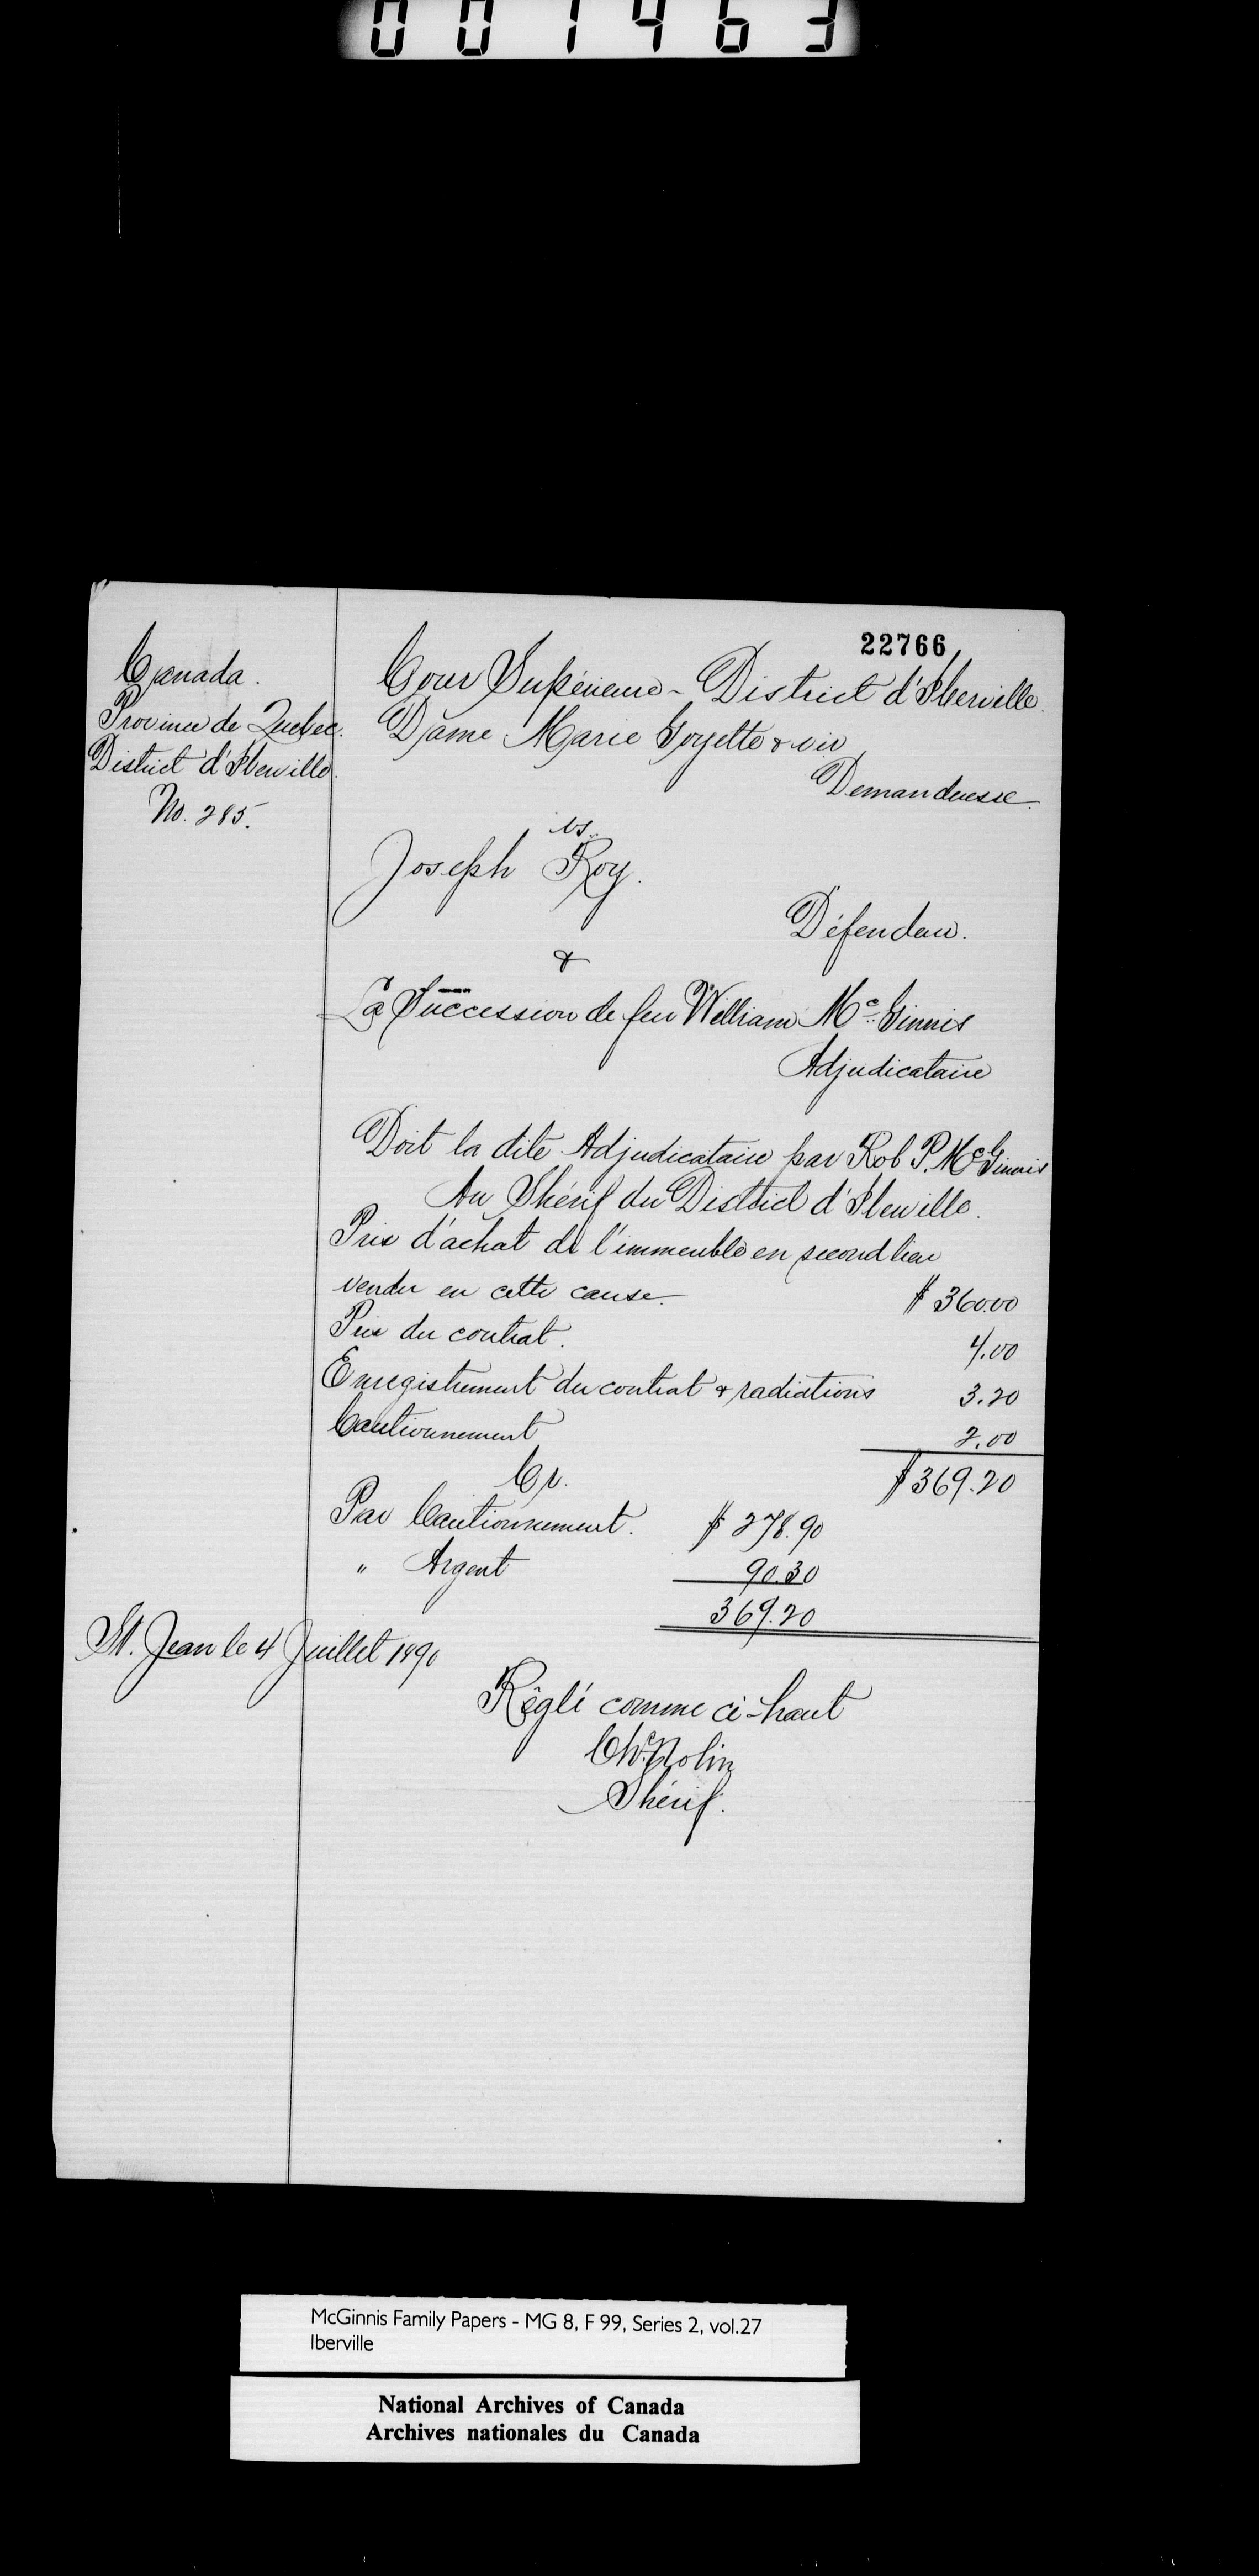 001463
22766
Canada.
Province de Quebec.
District d'Iberville.
No. 285.
Cour Supérieure - District d'Iberville.
Dame Marie Goyette & vir
Demanderesse.
vs.
Joseph Roy.
Défendeur.
&
La Succession de feu William McGinnis
Adjudicataire
Doit la dite Adjudicataire par Rob P. McGinnis
Au Shérif du District d'Iberville.
Prix d'achat de l'immeuble en second lieu
vendu en cette cause. $360.00
Prix du contrat. 4.00
Enregistrement du contrat & radiations 3.20
Cautionnement 2.00
Cr. $369.20
Par Cautionnement. $278.90
" Argent 90.30
369.20
St. Jean le 4 Juillet 1890
Réglé comme ci-haut
Chs Nolin
Shérif.
McGinnis Family Papers - MG 8, F 99, Series 2, vol.27
Iberville
National Archives of Canada
Archives nationales du Canada